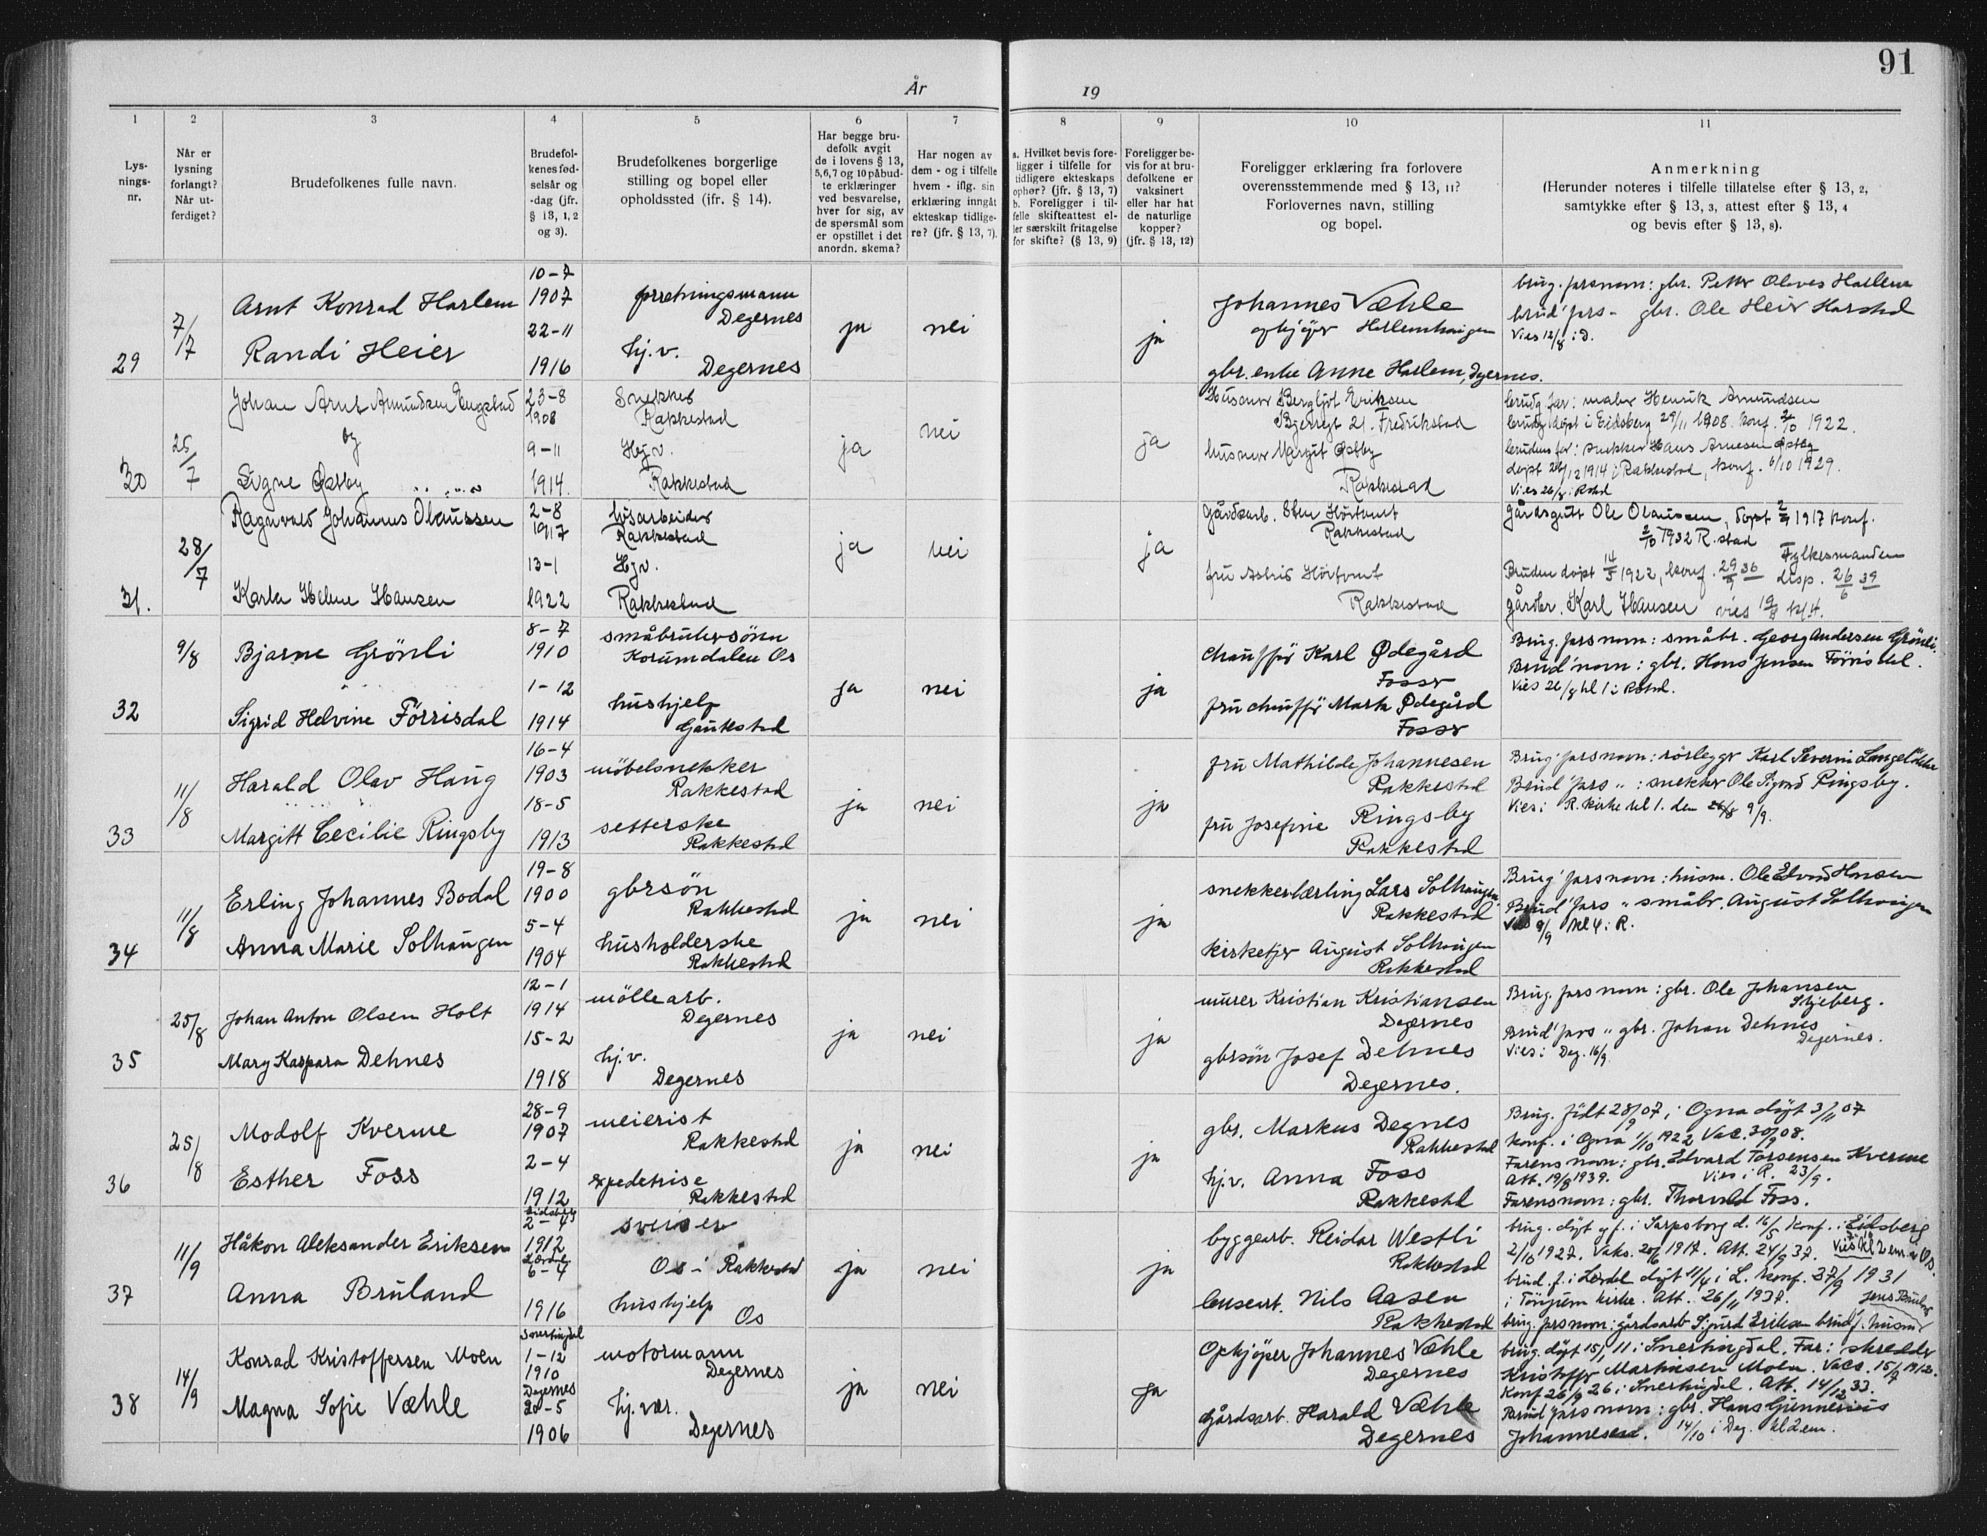 91
År
19
1
2
3
4
5
6
7
8
9
10
11
Lys-
nings-
nr.
Når er
lysning
forlangt?
Når ut-
ferdiget?
Brudefolkenes fulle navn.
Brudefol-
kenes fød-
selsår og
-dag (jfr.
§ 13, 1, 2
og 3).
Brudefolkenes borgerlige
stilling og bopel eller
opholdssted (jfr. § 14).
Har begge bru-
defolk avgit
de i lovens § 13,
5,6,7 og 10 påbud-
te erklæringer
ved besvarelse,
hver for sig, av
de spørsmål som
er opstillet i det
anordn. skema?
Har nogen av
dem - og i tilfelle
hvem - iflg. sin
erklæring inngåt
ekteskap tidlige-
re? (jfr. § 13, 7).
a. Hvilket bevis fore-
ligger i tilfelle for
tidligere ekteskaps
ophør? (jfr. § 13, 7)
b. Foreligger i til-
felle skifteattest el-
ler særskilt fritagelse
for skifte? (§ 13, 9)
Foreligger be-
vis for at bru-
defolkene er
vaksinert
eller har hat
de naturlige
kopper?
(jfr. § 13, 12)
Foreligger erklæring fra forlovere
overensstemmende med § 13, 11?
Forlovernes navn, stilling
og bopel.
Anmerkning
(Herunder noteres i tilfelle tillatelse efter § 13, 2,
samtykke efter § 13, 3, attest efter § 13, 4
og bevis efter § 13, 8).
29
7/7
Arnt Konrad Harlem
Randi Heier
10-7
1907
22-11
1916
forretningsmann
Degernes
hj.v.
Degernes
ja
nei
ja
Johannes Væhle
opkjøper
gbr. enke Anne Harlem, Degernes.
brug. farsnavn: gbr. Petter Olves Harlem
brud' fars - gbr. Ole Heier Harstad
Vies 12/8 i D.
30
25/7
Johan Arnt Amundsen Engstad
og
Signe Østby
23-8
1908
9-11
1914.
Snekker
Rakkestad
Hj.v.
Rakkestad
ja
nei
ja
Husmor Bergljot Eriksen
21. Fredrikstad
husmor Margit Østby
Rakkestad
brudg far: maler Henrik Amundsen
brudg døpt i Eidsberg 29/11 1908. konf. 2/10 1922.
brudens far: snekker Hans Arnesen Østby
døpt 26/12 1914 i Rakkestad, konf. 6/10 1929.
Vies 26/8 i Rstad
31.
28/7
Ragnvald Johannes Olaussen
Karla Helene Hansen
2-8
1917
13-1
1922
Rakkestad
Hjv.
Rakkestad
ja
nei
ja
Gårdsarb. Sten Hörtvart
Rakkestad
fru Astrid Hörtvart
Rakkestad
Gårdsgutt Ole Olaussen, døpt 2/9 1917 konf.
2/10 1932 R.stad
Bruden døpt 14/5 1922, konf. 29/9 36 Fylkesmanden
disp. 26/6 39
gårdbr. Karl Hansen vies 19/8 kl 4.
32
9/8
Bjarne Grönli
Sigrid Helvine Förrisdal
8-7
1910
1-12
1914
småbrukersönn
Korumdalen Os
hushjelp
Gautestad
ja
nei
ja
Chauffør Karl Ødegård
Fosser
fru chauffør Marta Ødegård
Fosser
Brug. fars navn: småbr. Georg Andersen Grönli.
Brud' navn: gbr. Hans Jensen Förrisdal.
Vies 26/8 kl 1 i Rstad.
33
11/8
Harald Olav Haug
Margitt Cecilie Ringsby
16-4
1903
18-5
1913
möbelsnekker
Rakkestad
setterske
Rakkestad
ja
nei
ja
fru Mathilde Johannesen
Rakkestad
fru Josefine Ringsby
Rakkestad
Brug' fars navn: rörlegger Karl Severin Langeløkke
Brud' fars „ : snekker Ole Sigvard Ringsby.
Vies i R. kirke kl 1. den 26/8 9/9.
34
11/8
Erling Johannes Bodal
Anna Marie Solhaugen
19-8
1900
5-4
1904
gbrsön
Rakkestad
husholderske
Rakkestad
ja
nei
ja
snekkerlærling Lars Solhaugen
Rakkestad
kirketjer August Solhaugen
Rakkestad
Brug' fars navn: husm. Ole Edvard Hansen
Brud' fars „ småbr. August Solhaugen
Vies 9/9 kl 4 i R.
35
25/8
Johan Anton Olsen Holt
Mary Kaspara Dehnes
12-1
1914
15-2
1918
möllearb.
Degernes
hj.v.
Degernes
ja
nei
ja
murer Kristian Kristiansen
Degernes
gbrsøn Josef Dehnes
Degernes.
Brug. fars navn: gbr. Ole Johansen
Skjeberg.
Brud' fars „ gbr. Johan Dehnes
Degernes.
Vies i Deg. 16/9.
36
25/8
Modolf Kverme
Esther Foss
28-9
1907
2-4
1912
meierist
Rakkestad
expedetrise
Rakkestad
ja
nei
ja
gbr. Markus Degnes
Rakkestad
hj.v. Anna Foss
Rakkestad
Brug. födt 28/9 07, i Ogna döpt 3/11 07
konf. i Ogna 1/10 1922 Vac. 30/9 08.
Farens navn: gbr. Edvard Torsensen Kverme
Att. 19/8 1939. Vies i R. 23/9.
Farens navn: gbr. Thorvald Foss.
37
11/9
Håkon Aleksander Eriksen
Anna Bruland
Eidsberg
2-4
1912
Lærdal
6-4
1916
sveiser
Os i Rakkestad
hushjelp
Os
ja
nei
ja
byggearb. Reidar Westli
Rakkestad
Nils Aasen
Rakkestad
brug. döpt g f. i Sarpsborg d. 16/5 konf. i Eidsberg
2/10 1927. Vaks. 20/6 1917. Att. 24/9 37. Vies kl 2 em. i Os.
brud. f. i Lærdal döpt 11/4 i L. konf. 27/9 1931
i Tönjum kirke. Att. 26/11 1937. Jens Bruland
brug. fars navn: gårdsarb Sigurd Eriksen brud f. husm
38
14/9
Konrad Kristoffersen Moen
Magna Sofie Væhle
Snertingdal
1-12
1910
Degernes
20-5
1906
motormann
Degernes
hj. vær.
Degernes
ja
nei
ja
Opkjöper Johannes Væhle
Degernes
Gårdsarb. Harald Væhle
Degernes
brug. döpt 15/1 11 i Snertingdal. Far: skredder
Kristoffer Martinsen Moen. Vacs. 15/7 1912.
Konf 26/9 26 i Snertingdal. Att. 14/12 33.
Brud' fars navn: gbr. Hans Gunnerius
Johannesen. 14/10 i Deg. kl 2 em.